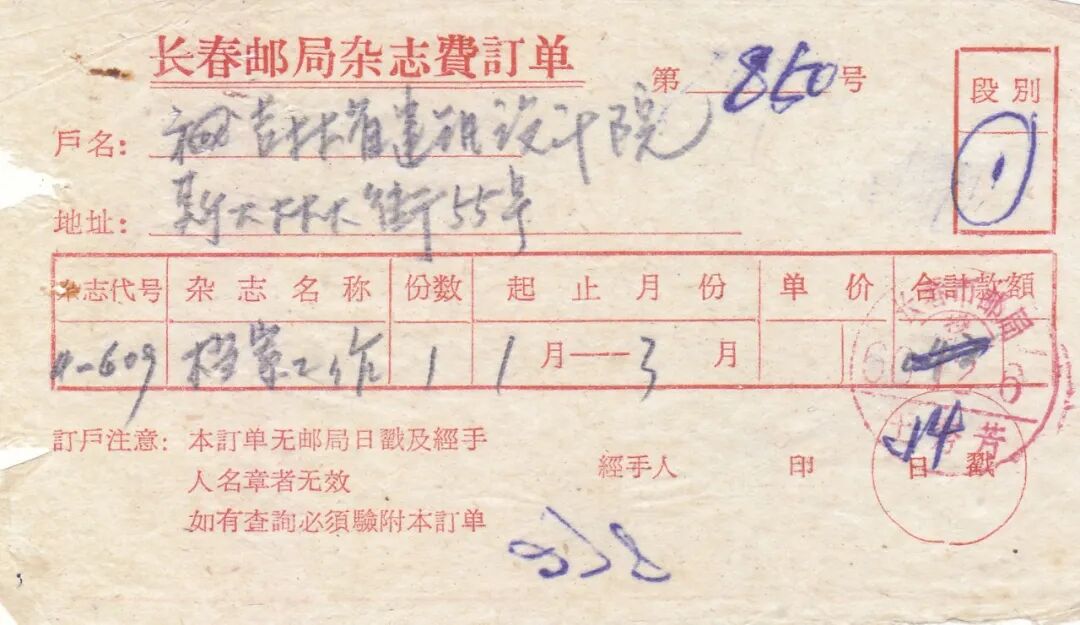 长春邮局杂志費訂单
第 860 号
段別
1
戶名： 吉林省建筑设计院
地址： 斯大林大街55号
杂志代号 杂志名称 份数 起止月份 单价 合計款額
11-609 档案工作 1 1月——3月
14
訂戶注意： 本訂单无邮局日戳及經手
人名章者无效
如有查詢必須驗附本訂单
經手人 印 日戳